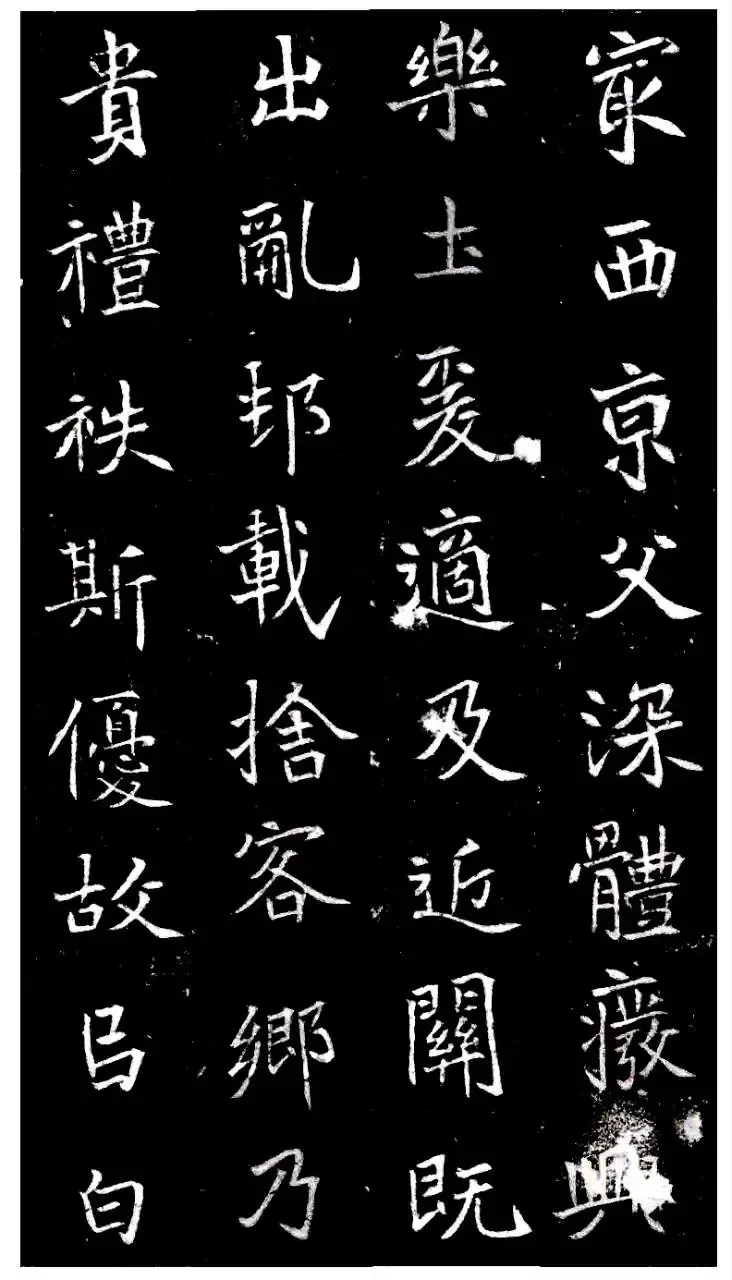 㝡西亰父深體癈興
樂圡爰適及近關既
出亂邦載捨客鄉乃
貴禮秩斯優故㠯白